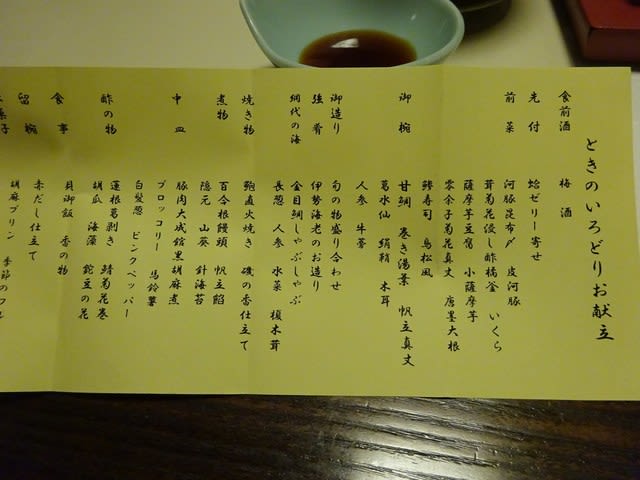 ときのいろどりお献立
食前酒 梅酒
先付 蛤ゼリー寄せ
前菜 河豚昆布〆 皮河豚
茸菊花浸し酢橘釜 いくら
薩摩芋豆腐 小薩摩芋
零余子菊花真丈 唐墨大根
鯵寿司 鳥松風
御椀 甘鯛 巻き湯葉 帆立真丈
葛水仙 絹鞘 木耳
人参 牛蒡
御造り 旬の物盛り合わせ
強肴 伊勢海老のお造り
網代の海 金目鯛しゃぶしゃぶ
長葱 人参 水菜 榎木茸
焼き物 鮑直火焼き 磯の香仕立て
煮物 百合根饅頭 帆立餡
隠元 山葵 針海苔
中皿 豚肉大成館黒胡麻煮
ブロッコリー 馬鈴薯
白髪葱 ピンクペッパー
酢の物 蓮根葛剥き 鯖菊花巻
胡瓜 海藻 蛇豆の花
食事 貝御飯 香の物
留椀 赤だし仕立て
菓子 胡麻プリン 季節のフル